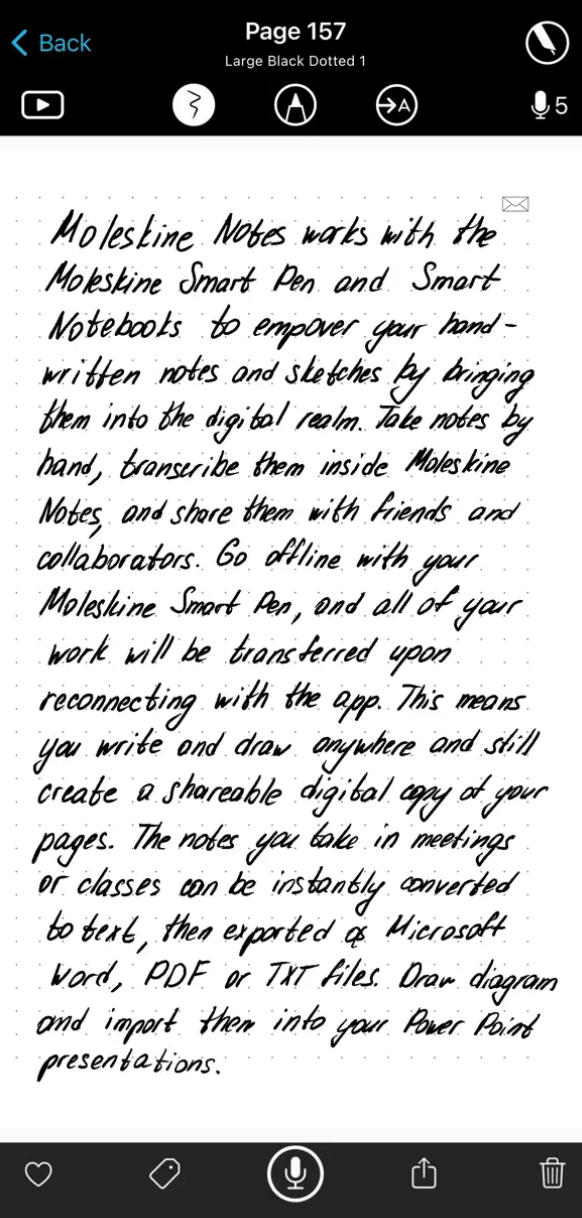 Back
Page 157
Large Black Dotted 1
5
Moleskine Notes works with the
Moleskine Smart Pen and Smart
Notebooks to empower your hand-
written notes and sketches by bringing
them into the digital realm. Take notes by
hand, transcribe them inside Moleskine
Notes, and share them with friends and
collaborators. Go offline with your
Moleskine Smart Pen, and all of your
work will be transferred upon
reconnecting with the app. This means
you write and draw anywhere and still
create a shareable digital copy of your
pages. The notes you take in meetings
or classes can be instantly converted
to text, then exported as Microsoft
Word, PDF or TXT files. Draw diagram
and import them into your Power Point
presentations.